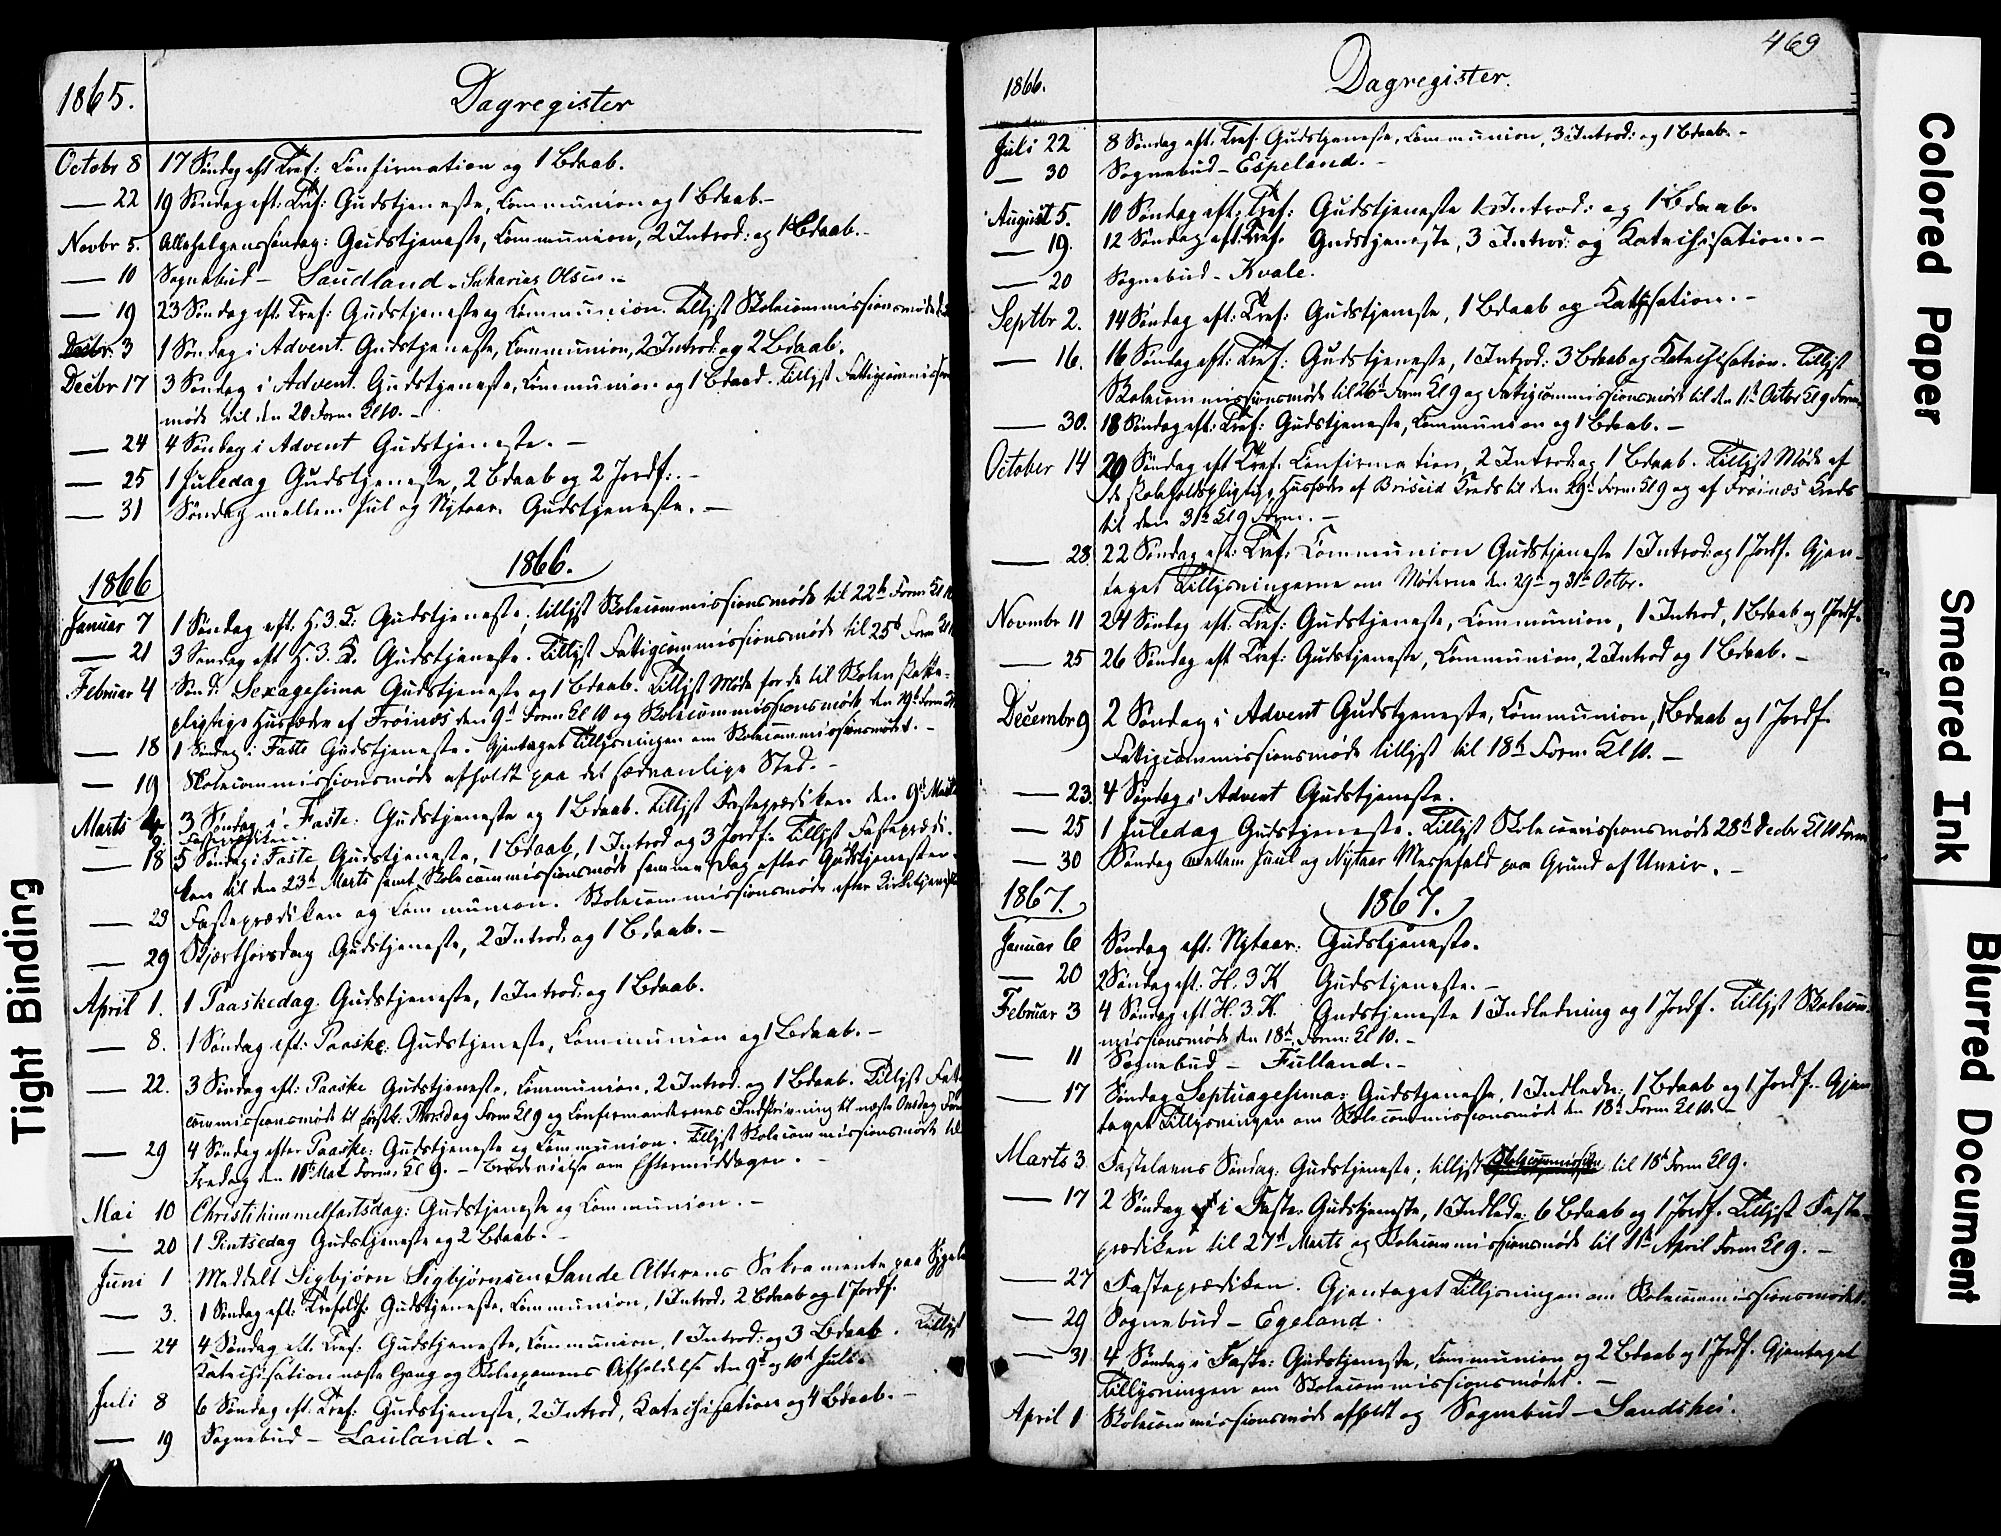 1865.
Dagregister
Octobr 8 17 Søndag eft Tref: Confirmation og 1 Bdaab.
— 22 19 Søndag eft: Tref: Gudstjeneste, Communion og 1 Bdaab.-
Novbr 5. Allehelgenssøndag: Gudstjeneste, Communion, 2 Introd: og 1 Bdaab.-
— 10 Sognebud - Saudland - Sakarias Olsen.-
— 19 23 Søndag eft. Tref: Gudstjeneste og Communion. Tillyst Skolecommissionsmøde
Decbr. 3 1 Søndag i Advent. Gudstjeneste, Communion, 2 Introd: og 2 Bdaab.
Decbr 17 3 Søndag i Advent. Gudstjeneste, Communion og 1 Bdaab. Tillyst Fattigcommissions
møde til den 20 Form. Kl 10. -
— 24 4 Søndag i Advent Gudstjeneste. -
— 25 1 Juledag Gudstjeneste, 2 Bdaab og 2 Jordf: -
— 31 Søndag mellem Jul og Nytaar. Gudstjeneste. -
1866 1866.
Januar 7 1 Søndag eft. H. 3. K: Gudstjeneste; tillyst Skolecommissionsmøde til 22de Form Kl 10
— 21 3 Søndag eft H. 3. K. Gudstjeneste. Tillyst Fattigcommissionsmøde til 25de Form
Februar 4 Sønd: Sexagesima Gudstjeneste og 1 Bdaab. Tillyst Møde for de til Skolen skatte-
pligtige Husfædre af Frøinæs den 9de Form Kl 10 og Skolecommissionsmøde den 19de Form
— 18 1 Søndag i Faste Gudstjeneste. Gjentaget Tillysningen om Skolecommissionsmødet. -
— 19 Skolecommissionsmøde afholdt paa det sædvanlige Sted. -
Marts 4 3 Søndag i Faste: Gudstjeneste og 1 Bdaab. Tillyst Fasteprædiken den 9de Marts
9. Fasteprædiken.
— 18 5 Søndag i Faste, Gudstjeneste, 1 Bdaab, 1 Introd og 3 Jordf: Tillyst Fasteprædi-
ken til den 23de Marts samt Skolecommissionsmøde samme Dag efter Gudstjenesten.
— 23 Fasteprædiken og Communion. Skolecommissionsmøde efter Kirketjeneste
— 29 Skjærthorsdag Gudstjeneste, 2 Introd: og 1 Bdaab. -
April 1. 1 Paaskedag. Gudstjeneste, 1 Introd: og 1 Bdaab.
— 8. 1 Søndag eft: Paaske: Gudstjeneste, Communion og 1 Bdaab. -
— 22. 3 Søndag eft: Paaske Gudstjeneste, Communion, 2 Introd: og 1 Bdaab. Tillyst
commissionsmøde til førstk. Thorsdag Form Kl 9 og Confirmandernes Indskrivning til næste Onsdag Form
— 29 4 Søndag efter Paaske: Gudstjeneste og Communion. Tillyst Skolecommissionsmøde til
Fredag den 10de Mai Form: Kl 9. - om Eftermiddagen. -
Mai 10 Christi himmelfartsdag: Gudstjeneste og Communion. -
— 20 1 Pintsedag Gudstjeneste og 2 Bdaab. -
Juni 1 Meddelt Sigbjørn Sigbjørnsen Sande Alterens Sakramente paa
— 3. 1 Søndag eft. Trefoldh: Gudstjeneste, Communion, 1 Introd, 2 Bdaab og 1 Jordf.
— 24 4 Søndag eft. Tref: Gudstjeneste, Communion, 1 Introd: og 3 Bdaab. Tillyst
Katechisation næste Gang og Skoleexamens Afholdelse den 9de og 10de Juli.
Juli 8 6 Søndag eft. Tref: Gudstjeneste, 2 Introd, Katechisation og 4 Bdaab. -
— 19 Sognebud - Lauland. -
469
1866.
Dagregister.
Juli 22 8 Søndag eft. Tref. Gudstjeneste, Communion, 3 Introd: og 1 Bdaab. -
— 30 Sognebud - Espeland. -
August 5. 10 Søndag eft: Tref: Gudstjeneste 1 Introd: og 1 Bdaab.
— 19. 12 Søndag eft: Tref. Gudstjeneste, 3 Introd: og Katechisation. -
— 20 Sognebud - Kvale.
Septbr 2. 14 Søndag eft: Tref: Gudstjeneste, 1 Bdaab og Kathisation. -
— 16. 16 Søndag eft: Tref: Gudstjeneste, 1 Introd: 3 Bdaab og Katechisation. Tillyst
Skolecommissionsmøde til 26de Form Kl 9 og Fattigcommissionsmøde til den 11te Octbr Kl 9 Form
— 30. 18 Søndag eft: Tref: Gudstjeneste, Communion og 1 Bdaab. -
October 14 20 Søndag eft Tref. Confirmation, 2 Introd: og 1 Bdaab. Tillyst Møde af
de skoleholdspligtige Husfædre af Briseid Kreds til den 29de Form Kl 9 og af Frøinæs Kreds
til den 31te Kl 9 Form. -
— 28. 22 Søndag eft: Tref: Communion Gudstjeneste 1 Introd: og 1 Jordf. Gjen-
taget Tillysningerne om Møderne den 29de og 31te Octbr.
Novembr 11 24 Søndag eft. Tref: Gudstjeneste, Communion, 1 Introd, 1 Bdaab og 1 Jordf.
— 25 26 Søndag eft Tref: Gudstjeneste, Communion, 2 Introd og 1 Bdaab. -
Decembr 9 2 Søndag i Advent Gudstjeneste, Communion, 1 Bdaab og 1 Jordf.
Fattigcommissionsmøde tillyst til 18de Form Kl 10. -
— 23. 4 Søndag i Advent Gudstjeneste.
— 25 1 Juledag Gudstjeneste. Tillyst Skolecomissionsmøde 28de Decbr Kl 10 Form
— 30 Søndag mellem Juul og Nytaar Messefald paa Grund af Uveir. -
1867. 1867.
Januar 6 Søndag eft. Nytaar: Gudstjeneste.
— 20 2 Søndag eft. H. 3 K Gudstjeneste. -
Februar 3 4 Søndag eft H. 3. K. Gudstjeneste 1 Indledning og 1 Jordf. Tillyst Skolecom-
missionsmøde den 18de Form: Kl 10. -
— 11 Sognebud - Fulland. -
— 17 Søndag Septuagesima: Gudstjeneste, 1 Indledn: 1 Bdaab og 1 Jordf. Gjen-
taget Tillysningen om Skolecommissionsmøde den 18de Form Kl 10. -
Marts 3 Fastelavns Søndag: Gudstjeneste; tillyst til 18de Form Kl 9.
— 17 2 Søndag i Faste: Gudstjeneste, 1 Indledn: 6 Bdaab og 1 Jordf. Tillyst Faste-
prædiken til 27de Marts og Skolecommissionsmøde til 1ste April Form Kl 9. -
— 27 Fasteprædiken. Gjentaget Tillysningen om Skolecommissionsmødet.
— 29 Sognebud - Egeland.
— 31 4 Søndag i Faste: Gudstjeneste, Communion og 2 Bdaab og 1 Jordf. Gjentaget
Tillysningen om Skolecommissionsmødet. -
April 1 Skolecommissionsmøde afholdt og Sognebud - Sandshei.
Tight Binding
Colored Paper
Smeared Ink
Blurred Document